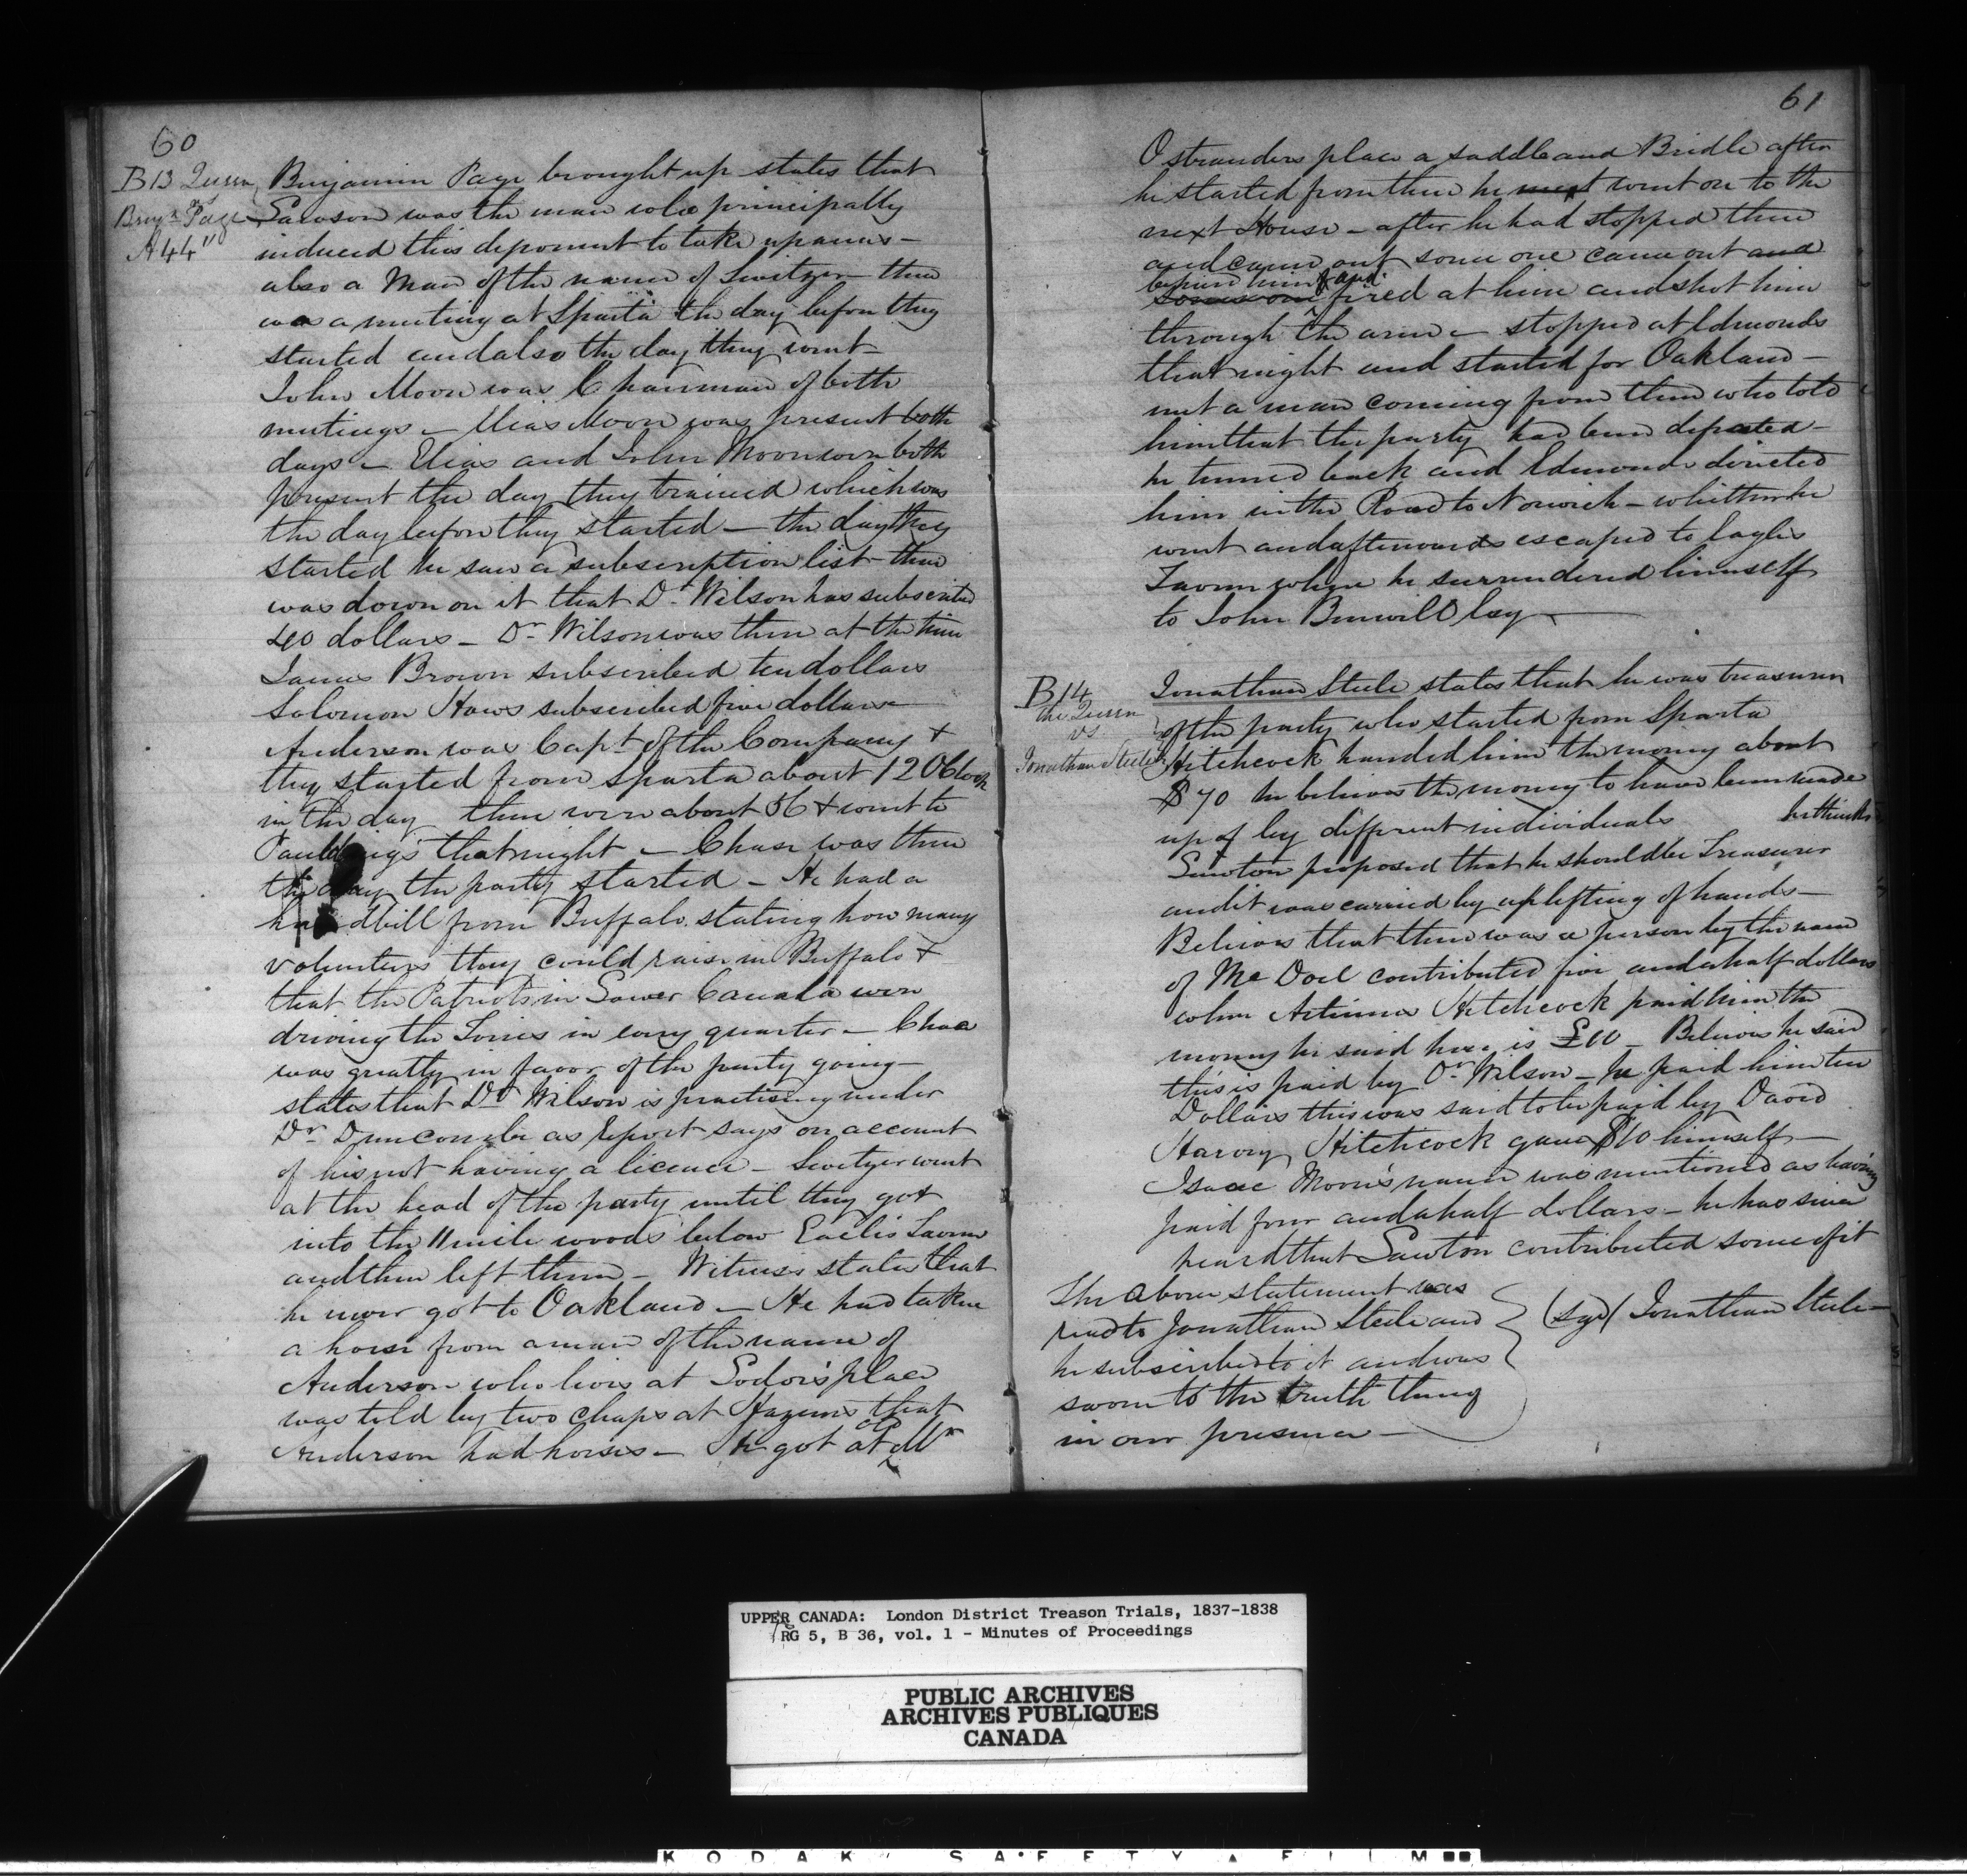 60
B13 Queen
vs
Benjn Page
A44"
Benjamin Page brought up states that
Lawson was the man who principally
induced this deponent to take up arms -
also a Man of the name of Switzer - there
was a meeting at Sparta the day before they
started and also the day they went -
John Moon was Chairman of both
meetings - Elias Moon was present both
days - Elias and John Moon were both
present the day they trained which was
the day before they started - the day they
started he saw a subscription list - there
was down on it that Dr Wilson has subscribed
40 dollars - Dr Wilson was there at the time
James Brown subscribed ten dollars
Solomon Haws subscribed five dollars -
Anderson was Capt of the Company +
they started from Sparta about 12 OClock
in the day there were about 56 + went to
Pauldings that night - Chase was there
the day the party started - He had a
handbill from Buffalo stating how many
volunteers they could raise in Buffalo +
that the Patriots in Lower Canada were
driving the Tories in every quarter - Chase
was greatly in favor of the party going -
states that Dr Wilson is practising under
Dr Duncombe as report says on account
of his not having a licence - Switzer went
at the head of the party until they got
into the 11 mile woods below Earlis Tavern
and then left them - Witness states that
he never got to Oakland - He had taken
a horse from a man of the name of
Anderson who lives at Sodoi's place
was told by two Chaps at Hazens that
Anderson had horses - He got at Mr
61
Ostranders place a saddle and Bridle after
he started from there he went on to the
next House - after he had stopped there
and came out some one came out and
before him & and
someone fired at him and shot him
through the arm - stopped at Edmonds
that night and started for Oakland -
met a man coming from there who told
him that the party had been defeated -
he turned back and Edmonds directed
him in the Road to Norwich - whither he
went and afterwards escaped to Eagles
Tavern where he surrendered himself
to John Burwell Esq -
B14
the Queen
vs
Jonathan Steele
Jonathan Steele states that he was treasurer
of the party who started from Sparta
Hitchcock handed him the money about
$70 he believes the money to have been made
up of by different individuals he thinks
Lawton proposed that he should be Treasurer
and it was carried by uplifting of hands -
Believes that there was a person by the name
of Mc Doel contributed five and a half dollars
when Artimus Hitchcock paid him the
money he said here is £10 - Believes he said
this is paid by Dr Wilson - he paid him ten
Dollars this was said to be paid by David
Harvey Hitchcock gave $10 himself -
Isaac Moore's name was mentioned as having
paid four and a half dollars - he has since
heard that Lawton contributed some of it
The above statement was
read to Jonathan Steele and
he subscribed to it and was
sworn to the truth thereof
in our presence -
(sgd) Jonathan Steele -
UPPER CANADA: London District Treason Trials, 1837-1838
RG 5, B 36, vol. 1 - Minutes of Proceedings
PUBLIC ARCHIVES
ARCHIVES PUBLIQUES
CANADA
KODAK SAFETY FILM